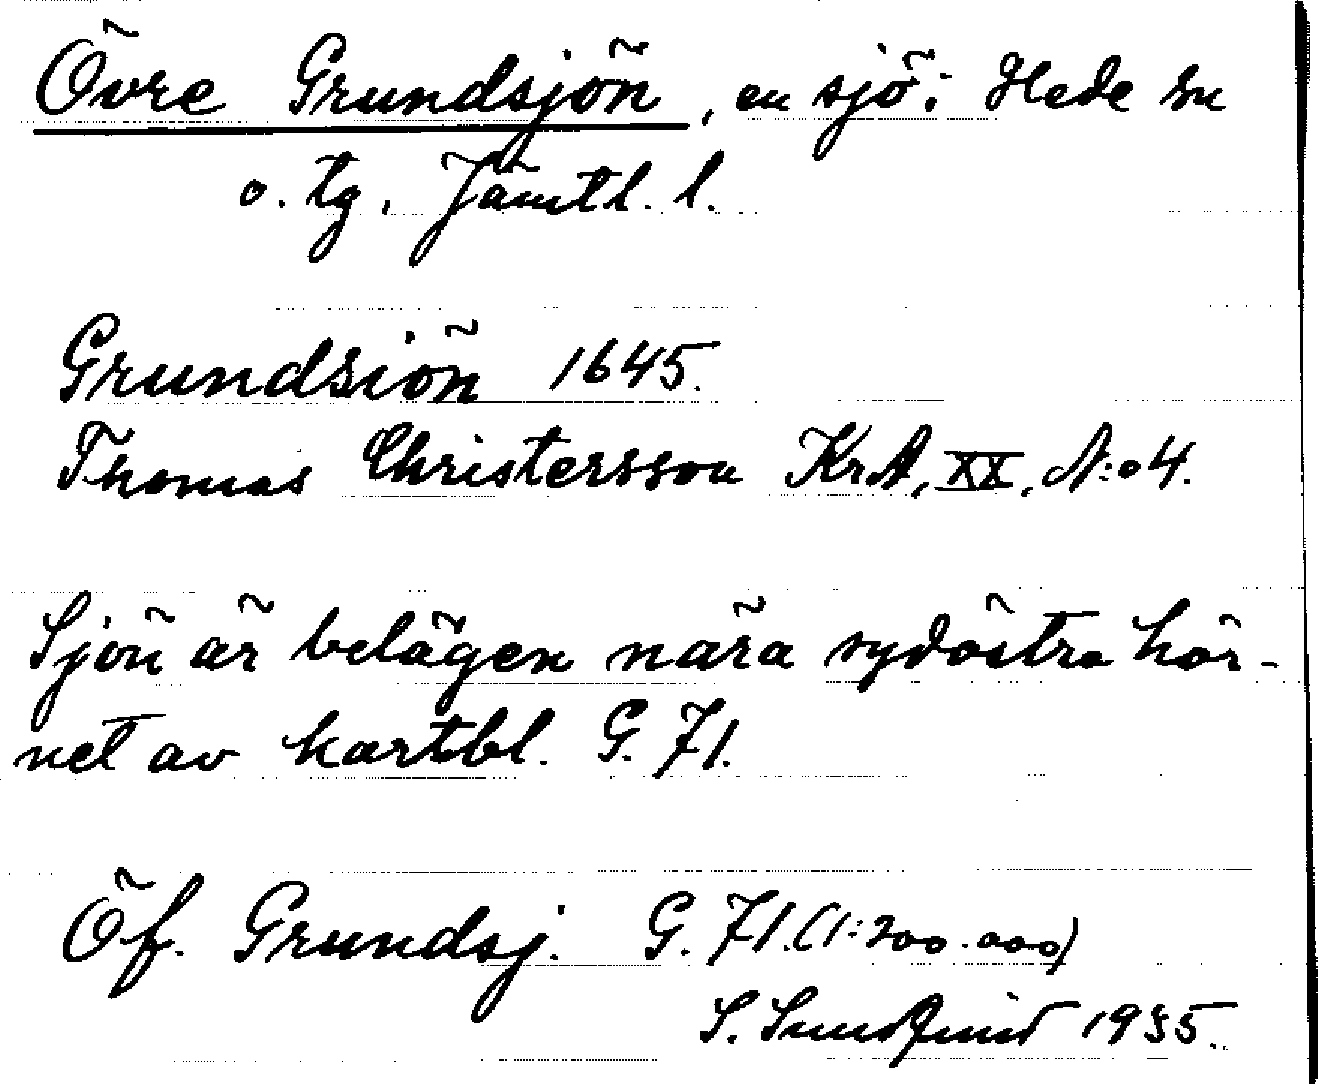 Övre Grundsjön, en sjö i Hede sn
o. tg. Jämtl. l.
Grundsiön 1645.
Thomas Christersson KrA, XX, N:o 4.
Sjön är belägen nära sydöstra hör-
net av kartbl. G. 71.
Öf. Grundsj. G. 71. (1:200.000)
S. 1935.